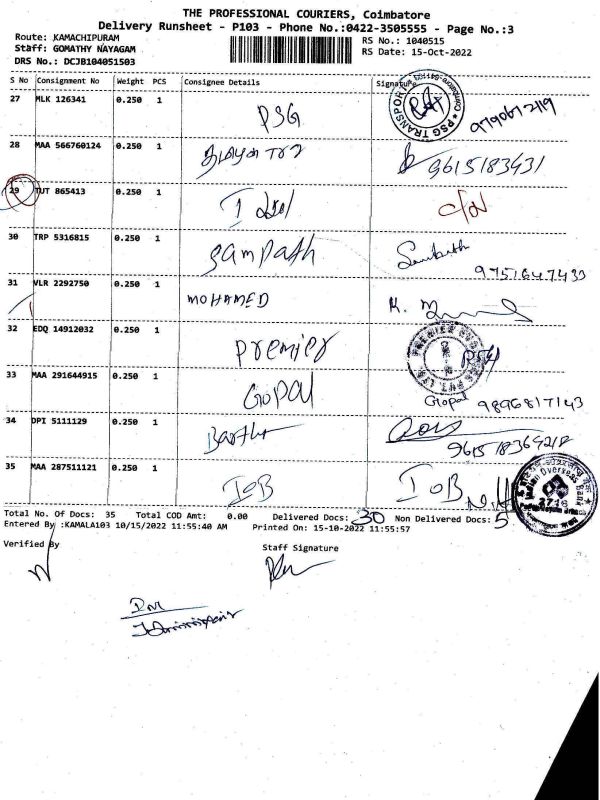 THE PROFESSIONAL COURIERS, Coimbatore
Delivery Runsheet - P103 - Phone No.:0422-3505555 - Page No.:3
Route: KAMACHIPURAM RS No.: 1040515
Staff: GOMATHY NAYAGAM RS Date: 15-Oct-2022
DRS No.: DCJB104051503
S No Consignment No Weight PCS Consignee Details Signature
27 MLK 126341 0.250 1 PSG PSG TRANSPOR
28 MAA 566760124 0.250 1 9615183431
29 TUT 865413 0.250 1
30 TRP 5316815 0.250 1 Sampath
9751647433
31 VLR 2292750 0.250 1 MOHAMED
32 EDQ 14912032 0.250 1 Premier PREMIER
33 MAA 291644915 0.250 1 GOPAL Gopal 9896817143
34 DPI 5111129 0.250 1
35 MAA 287511121 0.250 1 IOB IOB Indian Overseas Bank 2718
Total No. Of Docs: 35 Total COD Amt: 0.00 Delivered Docs: 30 Non Delivered Docs: 5
Entered By :KAMALA103 10/15/2022 11:55:40 AM Printed On: 15-10-2022 11:55:57
Verified By Staff Signature